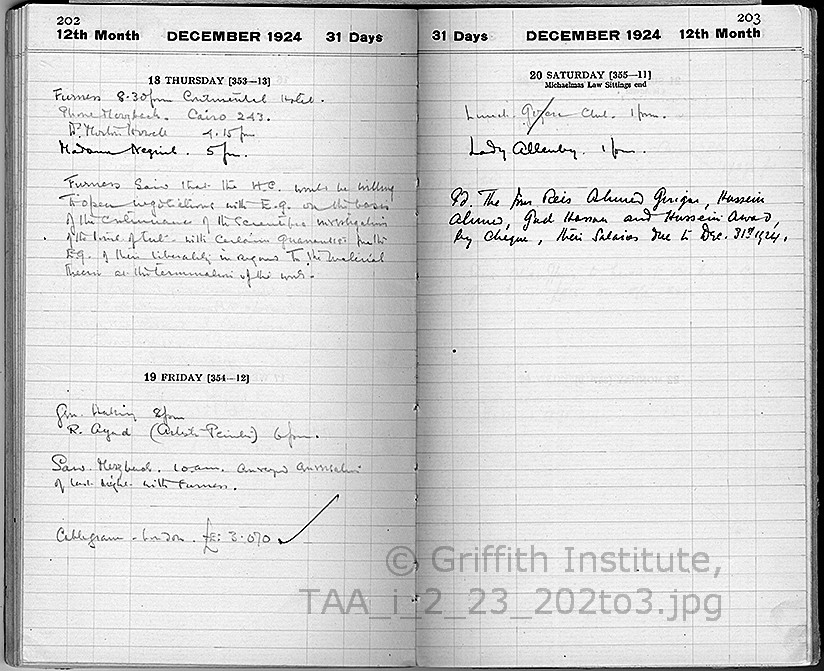 202
12th Month DECEMBER 1924 31 Days
18 THURSDAY [353—13]
Furness 8.30 pm Continental Hotel.
Phone Merzbach. Cairo 243.
Dr. Morton Howell 4.15 pm
Madame Neguib. 5 pm.
Furness said that the H.C. would be willing
to open negotiations with E.G. on the basis
of the continuance of the scientific investigation
of the tomb of Tut. with certain guarantees from the
E.G. of their liberality in regard to the material
therein at the termination of the work.
19 FRIDAY [354—12]
Gen. 2 pm
R. Ayad (Artist Painter) 6 pm.
Saw Merzbach. 10. a.m. conversation
of last night with Furness.
Cablegram - London. £E: 3.070
203
31 Days DECEMBER 1924 12th Month
20 SATURDAY [355—11]
Michaelmas Law Sittings end
Lunch Club. 1 pm.
Lady Allenby. 1 pm.
Pd. The four Reis Ahmed Girigar, Hussein
Ahmed, Gad Hassan and Hussein Awad,
by cheque, their salaries due to Dec. 31st 1924.
© Griffith Institute,
TAA_i_2_23_202to3.jpg